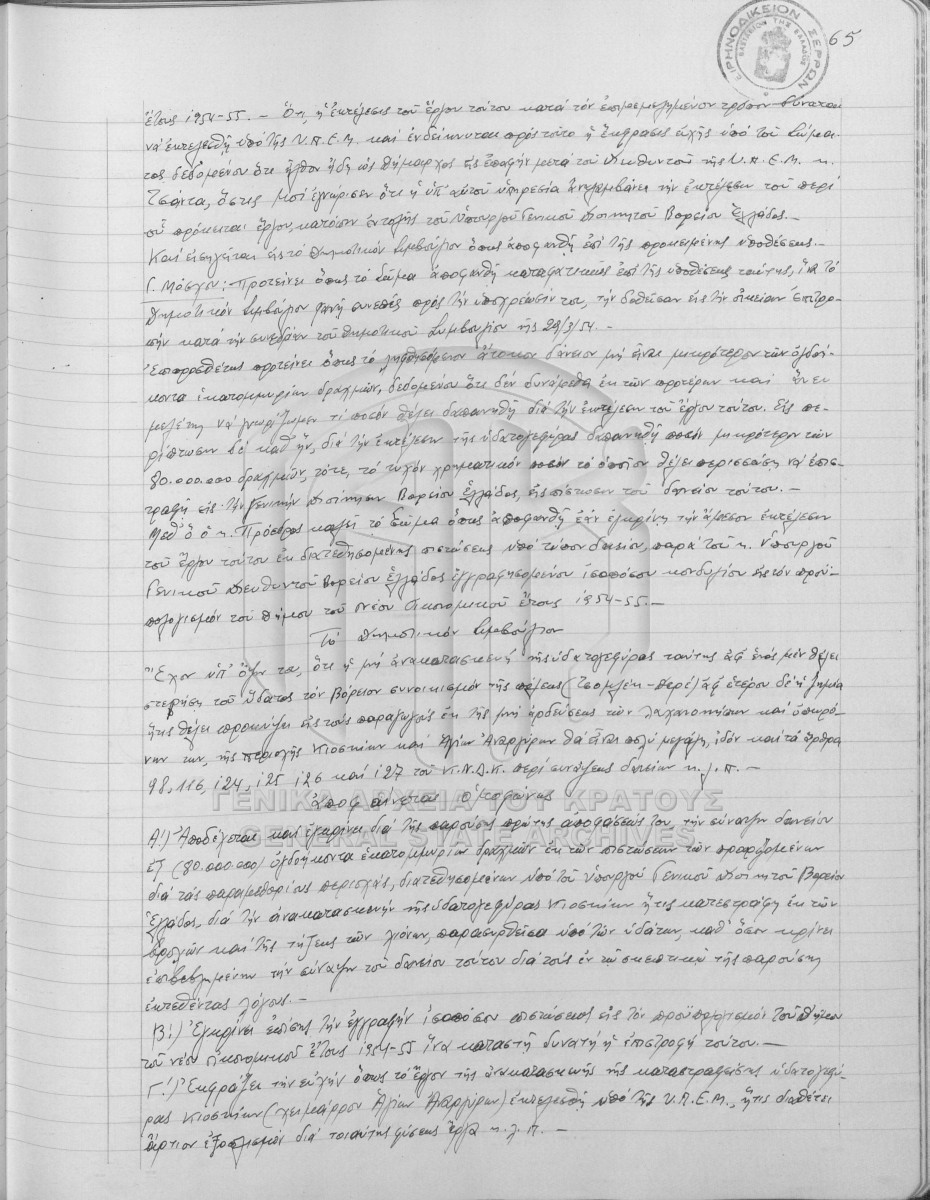 65
ΕΙΡΗΝΟΔΙΚΕΙΟΝ ΣΕΡΡΩΝ
ΒΑΣΙΛΕΙΟΝ ΤΗΣ ΕΛΛΑΔΟΣ
ἔτους 1954-55. – Ὅτι, ἡ ἐκτέλεσις τοῦ ἔργου τούτου κατὰ τὸν τρόπον δύναται
νὰ ἐκτελεσθῇ ὑπὸ τῆς Υ.Π.Ε.Μ. καὶ ἐνδείκνυται πρὸς τοῦτο ἡ ἔκφρασις εὐχῆς ὑπὸ τοῦ Σώμα-
τος δεδομένου ὅτι ἦλθον ἤδη ὡς Δήμαρχος εἰς ἐπαφὴν μετὰ τοῦ Διευθυντοῦ τῆς Υ.Π.Ε.Μ. κ.
Τσάντα, ὅστις μοὶ ἐγνώρισεν ὅτι ἡ ὑπ' αὐτοῦ ὑπηρεσία ἀναλαμβάνει τὴν ἐκτέλεσιν τοῦ περὶ
οὗ πρόκειται ἔργου, κατόπιν ἐντολῆς τοῦ Ὑπουργοῦ Γενικοῦ Διοικητοῦ Βορείου Ἑλλάδος. –
Καὶ εἰσηγεῖται εἰς τὸ Δημοτικὸν Συμβούλιον ὅπως ἀποφανθῇ ἐπὶ τῆς προκειμένης ὑποθέσεως. –
Γ. Μόσχου: Προτείνει ὅπως τὸ Σῶμα ἀποφανθῇ καταφατικῶς ἐπὶ τῆς ὑποθέσεως ταύτης, ἵνα τὸ
Δημοτικὸν Συμβούλιον φανῇ συνεπὲς πρὸς τὴν ὑποχρέωσίν του, τὴν δοθεῖσαν εἰς τὴν οἰκείαν ἐπιτρο-
πὴν κατὰ τὴν συνεδρίαν τοῦ Δημοτικοῦ Συμβουλίου τῆς 29/3/54. –
Ἐπιπροσθέτως προτείνει ὅπως τὸ ληφθησόμενον ἄτοκον δάνειον μὴ εἶναι μικρότερον τῶν ὀγδοή-
κοντα ἑκατομμυρίων δραχμῶν, δεδομένου ὅτι δὲν δυνάμεθα ἐκ τῶν προτέρων καὶ ἄνευ
μελέτης νὰ γνωρίζωμεν τί ποσὸν θέλει δαπανηθῆ διὰ τὴν ἐκτέλεσιν τοῦ ἔργου τούτου. Εἰς πε-
ρίπτωσιν δὲ καθ' ἥν, διὰ τὴν ἐκτέλεσιν τῆς ὑδατογεφύρας δαπανηθῇ ποσὸν μικρότερον τῶν
80.000.000 δραχμῶν, τότε, τὸ τυχὸν χρηματικὸν ποσὸν τὸ ὁποῖον θέλει περισσεύσῃ νὰ ἐπισ-
τραφῇ εἰς τὴν Γενικὴν Διοίκησιν Βορείου Ἑλλάδος, εἰς πίστωσιν τοῦ δανείου τούτου. –
Μεθ' ὃ ὁ κ. Πρόεδρος καλεῖ τὸ Σῶμα ὅπως ἀποφανθῇ ἐὰν ἐγκρίνῃ τὴν ἄμεσον ἐκτέλεσιν
τοῦ ἔργου τούτου ἐκ διατεθησομένης πιστώσεως ὑπὸ τύπον δανείου, παρὰ τοῦ κ. Ὑπουργοῦ
Γενικοῦ Διευθυντοῦ Βορείου Ἑλλάδος ἐγγραφησομένου ἰσοπόσου κονδυλίου εἰς τὸν προϋ-
πολογισμὸν τοῦ Δήμου τοῦ νέου οἰκονομικοῦ ἔτους 1954-55. –
Τὸ Δημοτικὸν Συμβούλιον
Ἔχον ὑπ' ὄψιν του, ὅτι ἡ μὴ ἀνακατασκευὴ τῆς ὑδατογεφύρας ταύτης ἀφ' ἑνὸς μὲν θέλει
στερήσῃ τοῦ ὕδατος τὸν Βόρειον συνοικισμὸν τῆς πόλεως ἀφ' ἑτέρου δὲ ἡ ζημία
ἥτις θέλει προκύψει εἰς τοὺς παραγωγοὺς ἐκ τῆς μὴ ἀρδεύσεως τῶν λαχανοκήπων καὶ ὀπωρώ-
νων των, τῆς περιοχῆς Κιοσκίων καὶ Ἁγίων Ἀναργύρων θὰ εἶναι πολὺ μεγάλη, ἰδὸν καὶ τὰ ἄρθρα
98, 116, 124, 125 126 καὶ 127 τοῦ Κ.Ν.Δ.Κ. περὶ συνάψεως δανείων κ.λ.π. –
Ἀποφαίνεται ὁμοφώνως
Α'.) Ἀποδέχεται καὶ ἐγκρίνει διὰ τῆς παρούσης πρώτης ἀποφάσεώς του, τὴν σύναψιν δανείου
ἐξ (80.000.000) ὀγδοήκοντα ἑκατομμυρίων δραχμῶν ἐκ τῶν πιστώσεων τῶν
διὰ τὰς παραμεθορίους περιοχάς, διατεθησομένων ὑπὸ τοῦ Ὑπουργοῦ Γενικοῦ Διοικητοῦ Βορείου
Ἑλλάδος, διὰ τὴν ἀνακατασκευὴν τῆς ὑδατογεφύρας Κιοσκίων ἥτις κατεστράφη ἐκ τῶν
βροχῶν καὶ τῆς τήξεως τῶν χιόνων, παρασυρθεῖσα ὑπὸ τῶν ὑδάτων, καθ' ὅσον κρίνει
ἐπιβεβλημένην τὴν σύναψιν τοῦ δανείου τούτου διὰ τοὺς ἐν τῷ σκεπτικῷ τῆς παρούσης
ἐκτεθέντας λόγους. –
Β'.) Ἐγκρίνει ἐπίσης τὴν ἐγγραφὴν ἰσοπόσου πιστώσεως εἰς τὸν προϋπολογισμὸν τοῦ Δήμου
τοῦ νέου οἰκονομικοῦ ἔτους 1954-55 ἵνα καταστῇ δυνατὴ ἡ ἐπιστροφὴ τούτου. –
Γ'.) Ἐκφράζει τὴν εὐχὴν ὅπως τὸ ἔργον τῆς ἀνακατασκευῆς τῆς καταστραφείσης ὑδατογεφύ-
ρας Κιοσκίων (χειμάρρου Ἁγίων Ἀναργύρων) ἐκτελεσθῇ ὑπὸ τῆς Υ.Π.Ε.Μ., ἥτις διαθέτει
ἄρτιον ἐξοπλισμὸν διὰ τοιαύτης φύσεως ἔργα κ.λ.π. –
ΓΕΝΙΚΑ ΑΡΧΕΙΑ ΤΟΥ ΚΡΑΤΟΥΣ
GENERAL STATE ARCHIVES